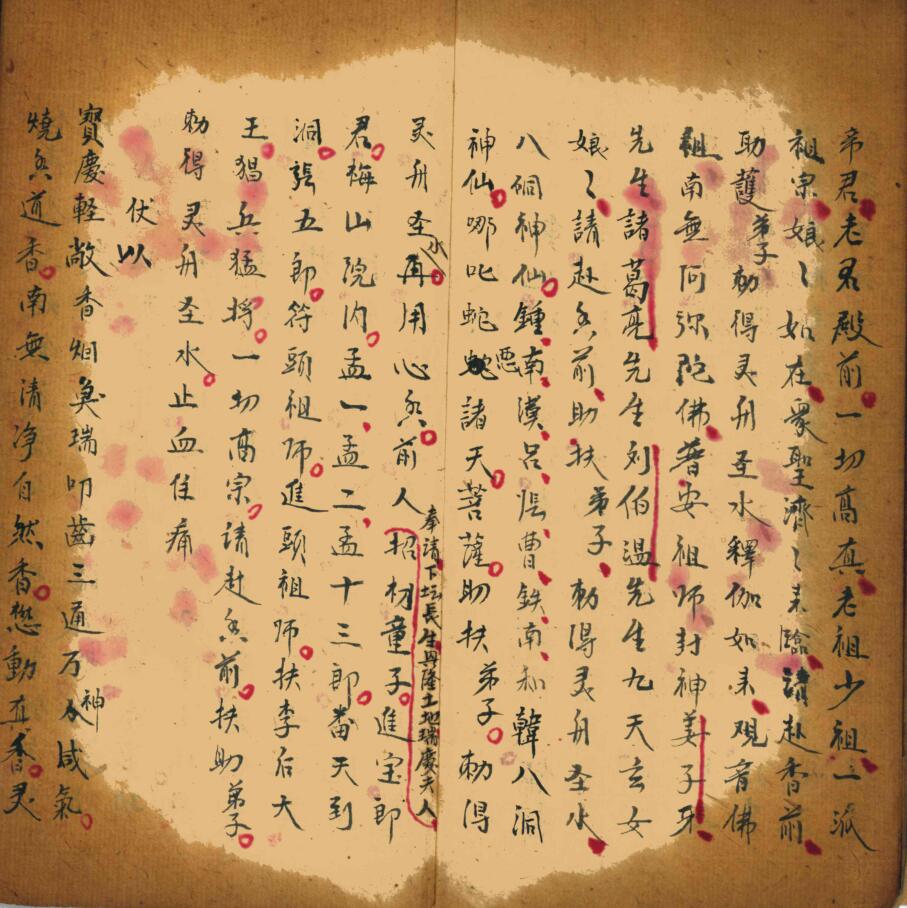 帝君老君殿前一切高真老祖少祖一派
祖宗娘〻如在衆聖濟〻来臨請赴香前
助護弟子勅得灵丹圣水釋伽如来观音佛
祖南無阿弥陀佛普安祖师封神姜子牙
先生諸葛亮先生刘伯温先生九天玄女
娘〻請赴香前助扶弟子勅得灵舟圣水
八硐神仙鍾南漢吕張曹鉄南和韓八洞
神仙哪叱蛇悪諸天菩薩助扶弟子勅得
灵舟圣水再用心香前人招才童子進宝郎
奉請下坛長生興隆土地瑞慶夫人
君梅山院内孟一孟二孟十三郎畨天到
洞張五郎符頭祖师進頭祖师扶李后大
王猖兵猛将一切高宗請赴香前扶助弟子
勅得灵舟圣水止血住痛
伏以
寳慶軽敲香烟奠瑞叩齒三通万神咸氣
燒香道香南無清净自然香懋動真香灵